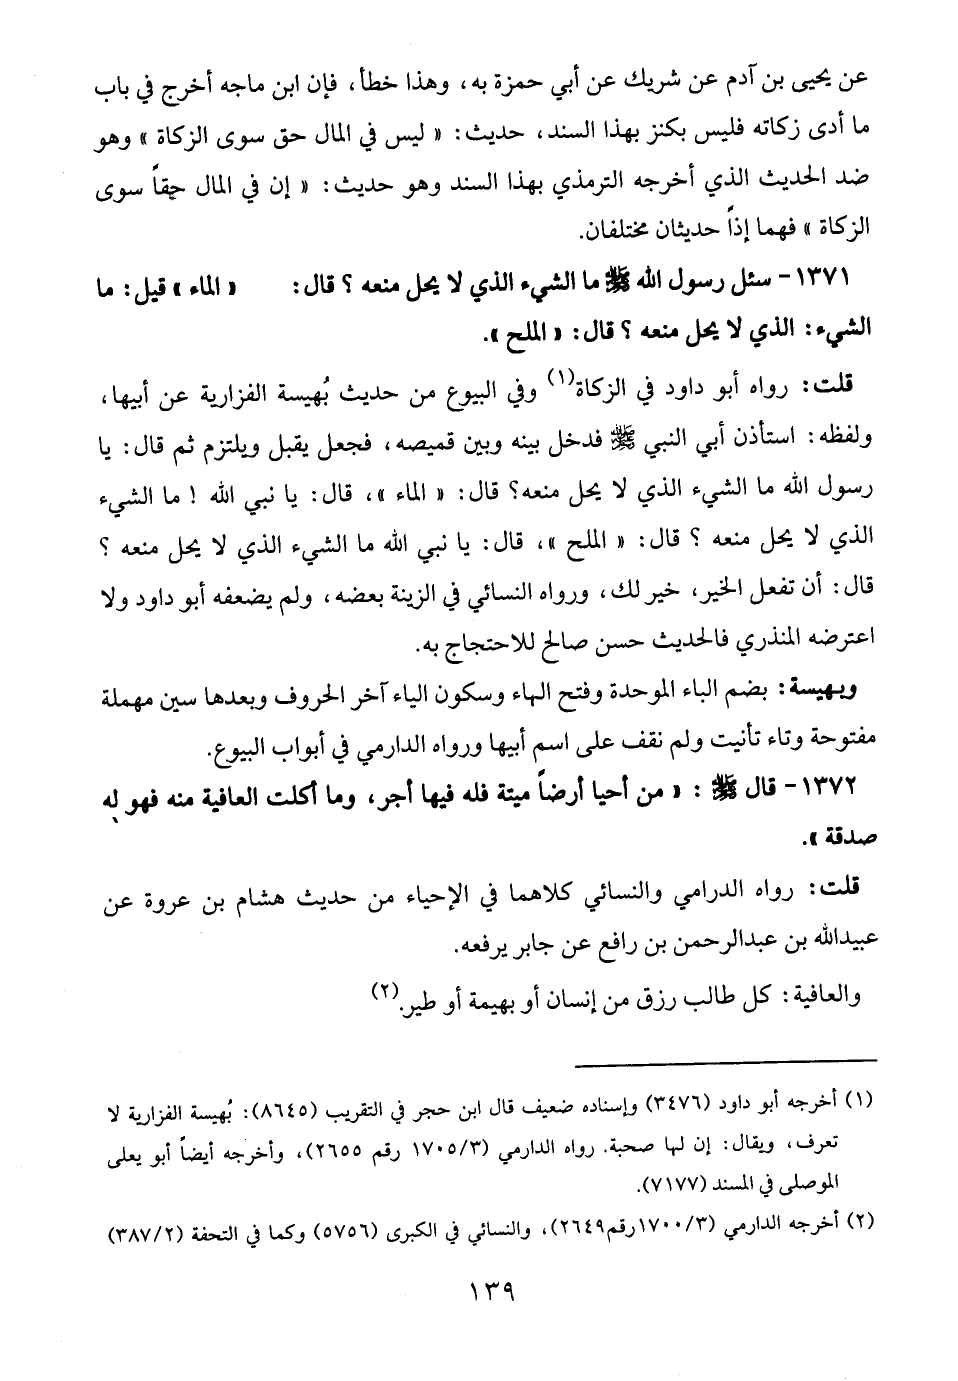 عن يحيى بن آدم عن شريك عن أبي حمزة به، وهذا خطأ، فإن ابن ماجه أخرج في باب
ما أدى زكاته فليس بكنز بهذا السند، حديث: « ليس في المال حق سوى الزكاة » وهو
ضد الحديث الذي أخرجه الترمذي بهذا السند وهو حديث: « إن في المال حقاً سوى
الزكاة » فهما إذاً حديثان مختلفان.
١٣٧١- سئل رسول الله ﷺ ما الشيء الذي لا يحل منعه ؟ قال: « الماء » قيل: ما
الشيء: الذي لا يحل منعه ؟ قال: « الملح ».
قلت: رواه أبو داود في الزكاة(١) وفي البيوع من حديث بُهيسة الفزارية عن أبيها،
ولفظه: استأذن أبي النبي ﷺ فدخل بينه وبين قميصه، فجعل يقبل ويلتزم ثم قال: يا
رسول الله ما الشيء الذي لا يحل منعه؟ قال: « الماء »، قال: يا نبي الله ! ما الشيء
الذي لا يحل منعه ؟ قال: « الملح »، قال: يا نبي الله ما الشيء الذي لا يحل منعه ؟
قال: أن تفعل الخير، خير لك، ورواه النسائي في الزينة بعضه، ولم يضعفه أبو داود ولا
اعترضه المنذري فالحديث حسن صالح للاحتجاج به.
وبهيسة: بضم الباء الموحدة وفتح الهاء وسكون الياء آخر الحروف وبعدها سين مهملة
مفتوحة وتاء تأنيت ولم نقف على اسم أبيها ورواه الدارمي في أبواب البيوع.
١٣٧٢- قال ﷺ : « من أحيا أرضاً ميتة فله فيها أجر، وما أكلت العافية منه فهو له
صدقة ».
قلت: رواه الدرامي والنسائي كلاهما في الإحياء من حديث هشام بن عروة عن
عبيدالله بن عبدالرحمن بن رافع عن جابر يرفعه.
والعافية: كل طالب رزق من إنسان أو بهيمة أو طير.(٢)
(١) أخرجه أبو داود (٣٤٧٦) وإسناده ضعيف قال ابن حجر في التقريب (٨٦٤٥): بُهيسة الفزارية لا
تعرف، ويقال: إن لها صحبة. رواه الدارمي (١٧٠٥/٣ رقم ٢٦٥٥)، وأخرجه أيضاً أبو يعلى
الموصلى في المسند (٧١٧٧).
(٢) أخرجه الدارمي (١٧٠٠/٣رقم٢٦٤٩)، والنسائي في الكبرى (٥٧٥٦) وكما في التحفة (٣٨٧/٢)
١٣٩